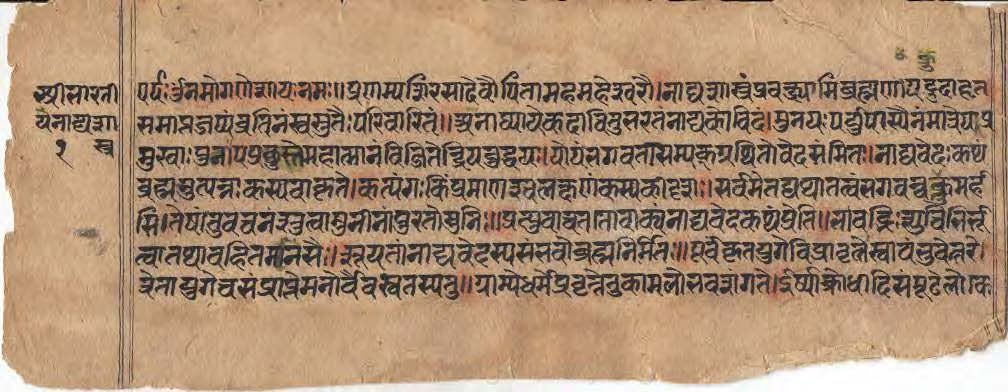 श्रीभारती
येनाट्यशा
१ स्त्र
ॐनमोगणेशायनमः॥प्रणम्यशिरसादेवौपितामहमहेश्वरौ॥नाट्यशास्त्रंप्रवक्ष्यामिब्रह्मणायदुदाहृत
समाप्तजप्यंव्रतिनंस्वसुतैःपरिवारितं॥अनाध्यायेकदावितुभरतंनाट्यकोविदं।मुनयःपर्युपास्यैनंमात्रेयप्र
मुखाःपुनापप्रछुस्तेमहात्मानंविजितेन्द्रियबुद्धयः।योयंभगवतासम्यक्ग्रथितोवेदसंमितः।नाट्यवेदःकथं
ब्रह्मन्नुत्पन्नःकस्यवाकृते।कत्यंगःकिंप्रमाणश्च कस्यकीदृशः।सर्वमेतद्यथातत्वंभगवन्वक्तुमर्ह
सि।तेषांतुवचनंश्रुत्वामुनीनांपुरतोमुनिः॥प्रत्युवाचततोवाक्यंनाट्यवेदकथंप्रति॥भवद्भिःशुचिभिर्भू
त्वातथावहितमानसैः॥श्रूयतांनाट्यवेदस्यसंभवोब्रह्मनिर्मितः॥पूर्वेकृतयुगेविप्रावृत्तेस्वायंभुवेन्तरे।
त्रेतायुगेचसंप्राप्तेमनोर्वैवस्वतस्यतु॥ग्राम्येधर्मेप्रवृत्तेतुकामलोभवशंगते।ईर्ष्याक्रोधादिसंमूढेलोकेक